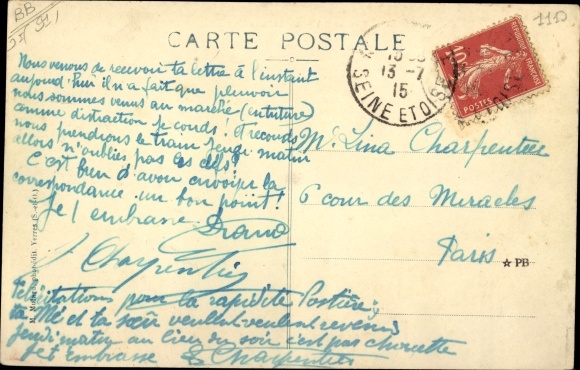 BB
CARTE POSTALE
1110
13-7
15
SEINE ET OISE
RÉPUBLIQUE FRANÇAISE
10
POSTES
Nous venons de recevoir ta lettre à l'instant
aujourd'hui il n'a fait que pleuvoir
nous sommes venus au marché (en voiture)
comme distraction je couds. et recouds
nous prendrons le train jeudi matin
alors n'oublies pas les clefs!
C'est bien d'avoir envoyer la
correspondance un bon point!
Je t embrasse
Charpentier
Mr Lina Charpentier
6 cour des Miracles
Paris
☆ PB
Félicitations pour la rapidité Postière,
ta Mé et ta sœur veullent revenir
jeudi matin au lieu du soir c'est pas chouette
Je t Embrasse Charpentier